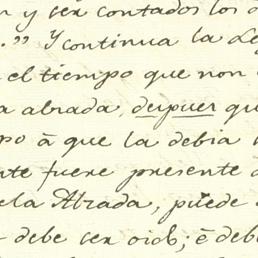 n y ser contados los
." Y continua la Le
el tiempo que non
a abrada, depuer qu
po á que la debia
nte fuere presente
ela Abrada, puede
debe ser oido; é deb